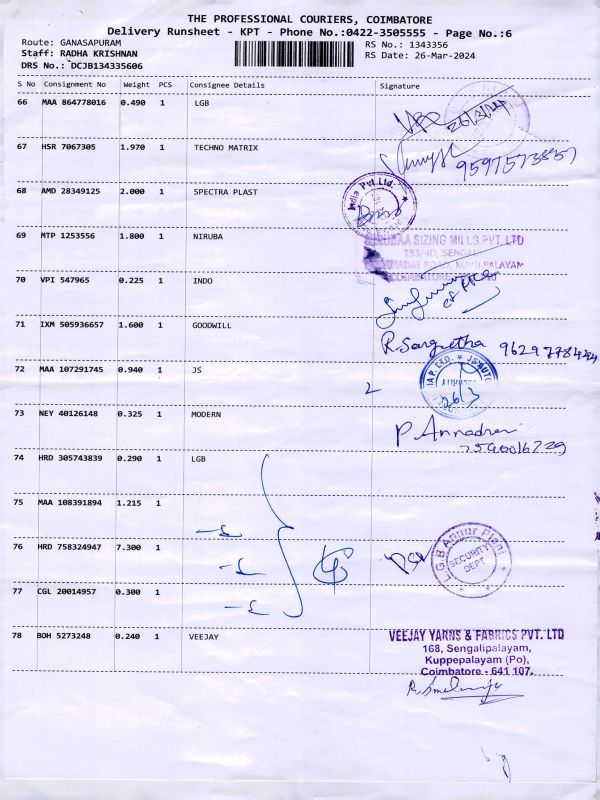 THE PROFESSIONAL COURIERS, COIMBATORE
Delivery Runsheet - KPT - Phone No.:0422-3505555 - Page No.:6
Route: GANASAPURAM RS No.: 1343356
Staff: RADHA KRISHNAN RS Date: 26-Mar-2024
DRS No.: DCJB134335606
S No Consignment No Weight PCS Consignee Details Signature
66 MAA 864778016 0.490 1 LGB
26/3/24
67 HSR 7067305 1.970 1 TECHNO MATRIX
9597573857
68 AMD 28349125 2.000 1 SPECTRA PLAST
India Pvt.Ltd.
69 MTP 1253556 1.800 1 NIRUBA
SIZING MILLS PVT. LTD
193/4D,
ROAD, KOVILPALAYAM
70 VPI 547965 0.225 1 INDO
71 IXM 505936657 1.600 1 GOODWILL
R. Sangeetha
72 MAA 107291745 0.940 1 JS
2
26/3
73 NEY 40126148 0.325 1 MODERN
P Annadurai
74 HRD 305743839 0.290 1 LGB
75 MAA 108391894 1.215 1
76 HRD 758324947 7.300 1
L.G.B Annur Plant
SECURITY
DEPT
77 CGL 20014957 0.300 1
78 BOH 5273248 0.240 1 VEEJAY
VEEJAY YARNS & FABRICS PVT. LTD
168, Sengalipalayam,
Kuppepalayam (Po),
Coimbatore - 641 107.